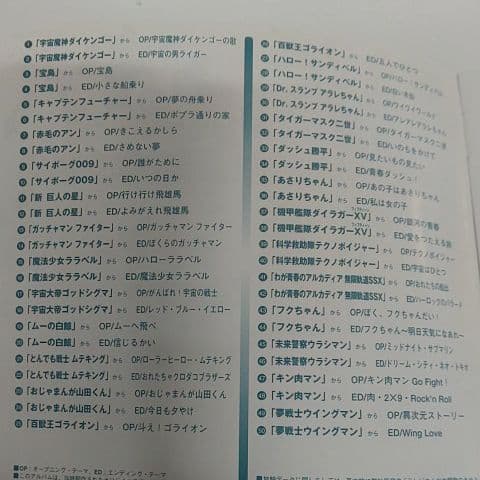 1 「宇宙魔神ダイケンゴー」から OP/宇宙魔神ダイケンゴーの歌
2 「宇宙魔神ダイケンゴー」から ED/宇宙の男ライガー
3 「宝島」から OP/宝島
4 「宝島」から ED/小さな船乗り
5 「キャプテンフューチャー」から OP/夢の舟乗り
6 「キャプテンフューチャー」から ED/ポプラ通りの家
7 「赤毛のアン」から OP/きこえるかしら
8 「赤毛のアン」から ED/さめない夢
9 「サイボーグ009」から OP/誰がために
10 「サイボーグ009」から ED/いつの日か
11 「新 巨人の星」から OP/行け行け飛雄馬
12 「新 巨人の星」から ED/よみがえれ飛雄馬
13 「ガッチャマン ファイター」から OP/ガッチャマン ファイター
14 「ガッチャマン ファイター」から ED/ぼくらのガッチャマン
15 「魔法少女ララベル」から OP/ハローララベル
16 「魔法少女ララベル」から ED/魔法少女ララベル
17 「宇宙大帝ゴッドシグマ」から OP/がんばれ!宇宙の戦士
18 「宇宙大帝ゴッドシグマ」から ED/レッド・ブルー・イエロー
19 「ムーの白鯨」から OP/ムーへ飛べ
20 「ムーの白鯨」から ED/信じるかい
21 「とんでも戦士 ムテキング」から OP/ローラーヒーロー・ムテキング
22 「とんでも戦士 ムテキング」から ED/おれたちゃクロダコブラザーズ
23 「おじゃまんが山田くん」から OP/おじゃまんが山田くん
24 「おじゃまんが山田くん」から ED/今日も夕やけ
25 「百獣王ゴライオン」から OP/斗え!ゴライオン
■OP:オープニング・テーマ、ED:エンディング・テーマ
26 「百獣王ゴライオン」から ED/五人でひとつ
27 「ハロー!サンディベル」から OP/ハロー!サンディベル
28 「ハロー!サンディベル」から ED/白い水仙
29 「Dr.スランプ アラレちゃん」から OP/ワイワイワールド
30 「Dr.スランプ アラレちゃん」から ED/アレアレアラレちゃん
31 「タイガーマスク二世」から OP/タイガーマスク二世
32 「タイガーマスク二世」から ED/いのちをかけて
33 「ダッシュ勝平」から OP/見たいもの見たい
34 「ダッシュ勝平」から ED/青春ダッシュ!
35 「あさりちゃん」から OP/あの子はあさりちゃん
36 「あさりちゃん」から ED/私は女の子
37 「機甲艦隊ダイラガーXV」から OP/銀河の青春
38 「機甲艦隊ダイラガーXV」から ED/愛をつたえる旅
39 「科学救助隊テクノボイジャー」から OP/テクノボイジャー
40 「科学救助隊テクノボイジャー」から ED/宇宙はひとつ
41 「わが青春のアルカディア 無限軌道SSX」から OP/おれたちの船出
42 「わが青春のアルカディア 無限軌道SSX」から ED/ハーロックのバラード
43 「フクちゃん」から OP/ぼく、フクちゃんだい!
44 「フクちゃん」から ED/フクちゃん〜明日天気になあれ〜
45 「未来警察ウラシマン」から OP/ミッドナイト・サブマリン
46 「未来警察ウラシマン」から ED/ドリーム・シティ・ネオ・トキオ
47 「キン肉マン」から OP/キン肉マン Go Fight!
48 「キン肉マン」から ED/肉・2×9・Rock'n Roll
49 「夢戦士ウイングマン」から OP/異次元ストーリー
50 「夢戦士ウイングマン」から ED/Wing Love